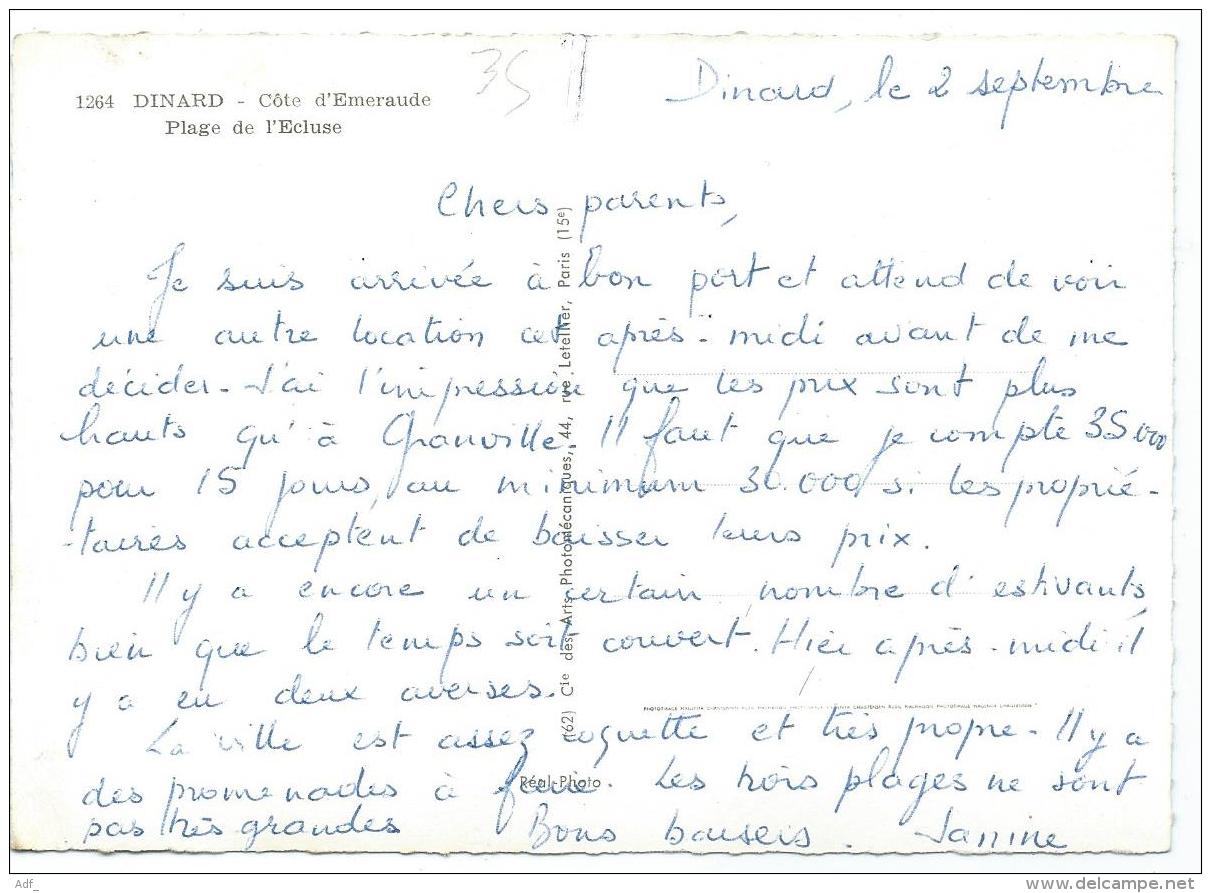 35
1264 DINARD - Côte d'Emeraude
Plage de l'Ecluse
Dinard, le 2 septembre
Chers parents,
Je suis arrivée à bon port et attend de voir
une autre location cet après-midi avant de me
décider. J'ai l'impression que les prix sont plus
hauts qu'à Granville. Il faut que je compte 35000
pour 15 jours, au minimum 30.000 si les proprié-
-taires acceptent de baisser leurs prix.
Il y a encore un certain nombre d'estivants,
bien que le temps soit couvert. Hier après-midi il
y a eu deux averses.
La ville est assez coquette et très propre. Il y a
des promenades à faire. Les trois plages ne sont
pas très grandes Bons baisers. Janine
(62) Cie des Arts Photomécaniques, 44, rue Letellier, Paris (15e)
Réal-Photo
Adf_
delcampe.net